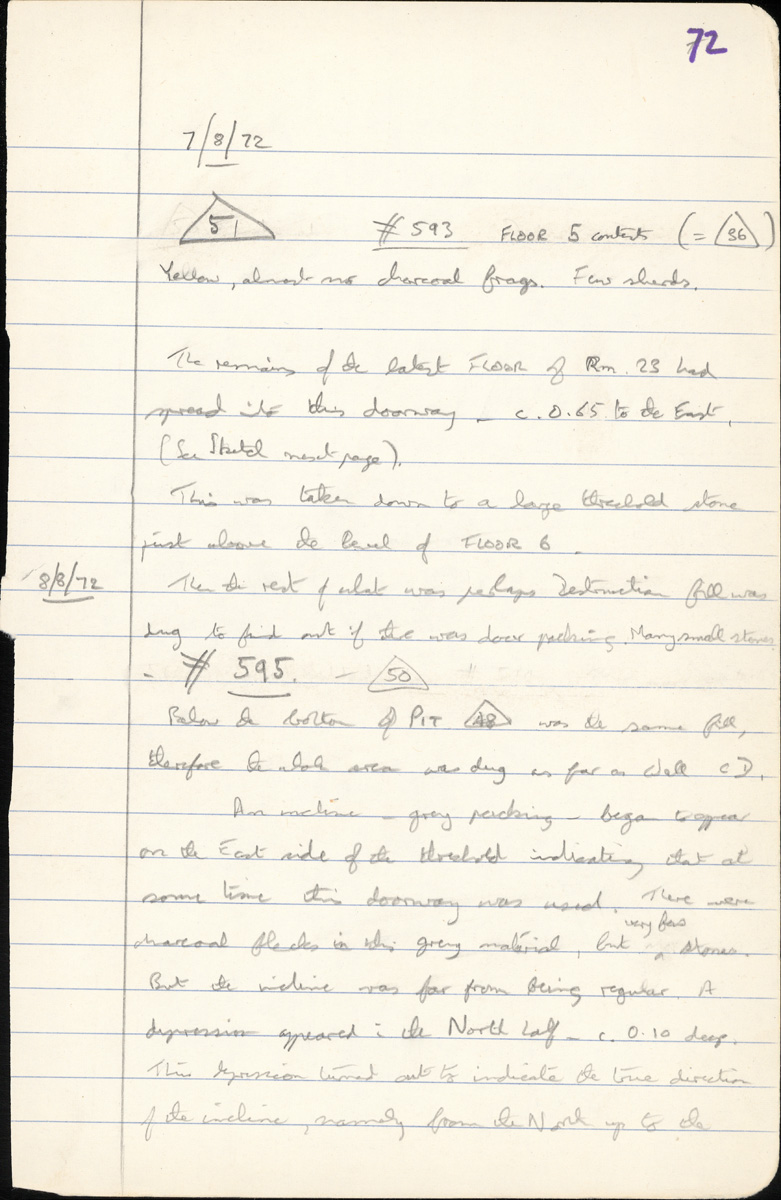 72
7/8/72
51 # 593 FLOOR 5 contents (= 36)
Yellow, almost no charcoal frags. Few sherds.
The remains of the latest FLOOR of Rm. 23 had
spread into this doorway – c. 0.65 to the East,
(See Sketch next page).
This was taken down to a large threshold stone
just above the level of FLOOR 6.
8/8/72 Then the rest of what was perhaps Destruction fill was
dug to find out if there was door packing. Many small stones
– # 595. – 50
Below the bottom of PIT 48 was the same fill,
therefore the whole area was dug as far as Wall CD.
An incline – grey packing – began to appear
on the East side of the threshold indicating that at
some time this doorway was used. There were
charcoal flecks in this grey material, but very few stones.
But the incline was far from being regular. A
depression appeared in the North half – c. 0.10 deep.
This depression turned out to indicate the true direction
of the incline, namely from the North up to the